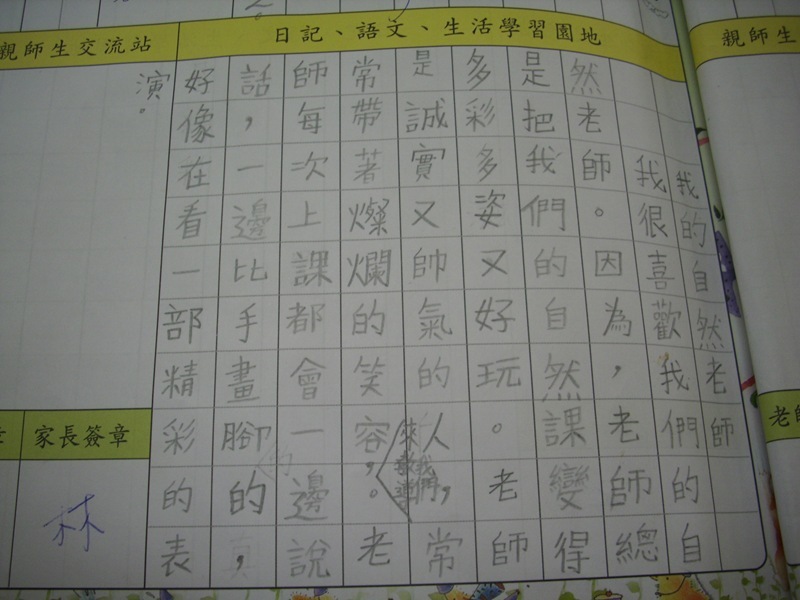 親師生交流站
日記、語文、生活學習園地
親師生
我的自然老師
我很喜歡我們的自
然老師。因為，老師總
是把我們的自然課變得
多彩多姿又好玩。老師
是誠實又帥氣的人，常
常帶著燦爛的笑容，來教導我們。老
師每次上課都會一邊說
話，一邊比手畫腳的，
好像在看一部精彩的表
演。
家長簽章
林
老師